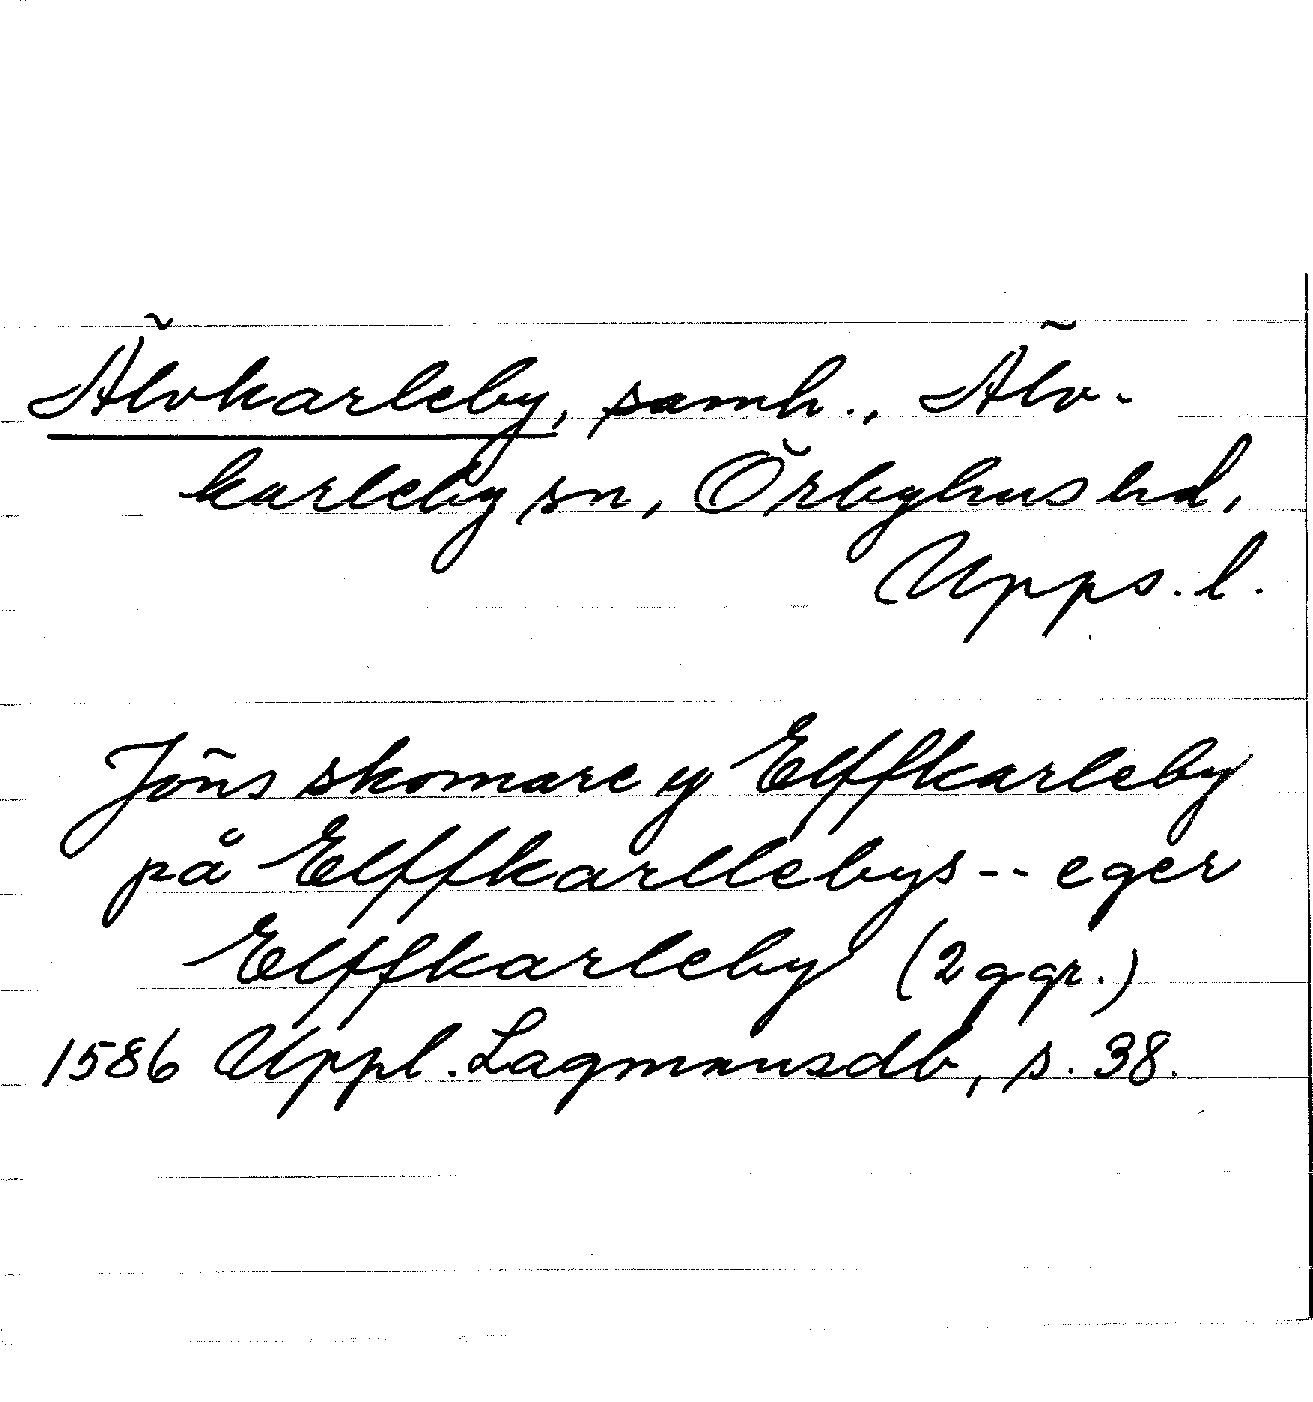 Älvkarleby, samh., Älv-
karleby sn, Örbyhus hd,
Upps. l.
Jöns skomare y Elffkarleby
på Elffkarllebys -- eger
Elffkarleby (2 ggr.)
1586 Uppl. Lagmansdb, s. 38.